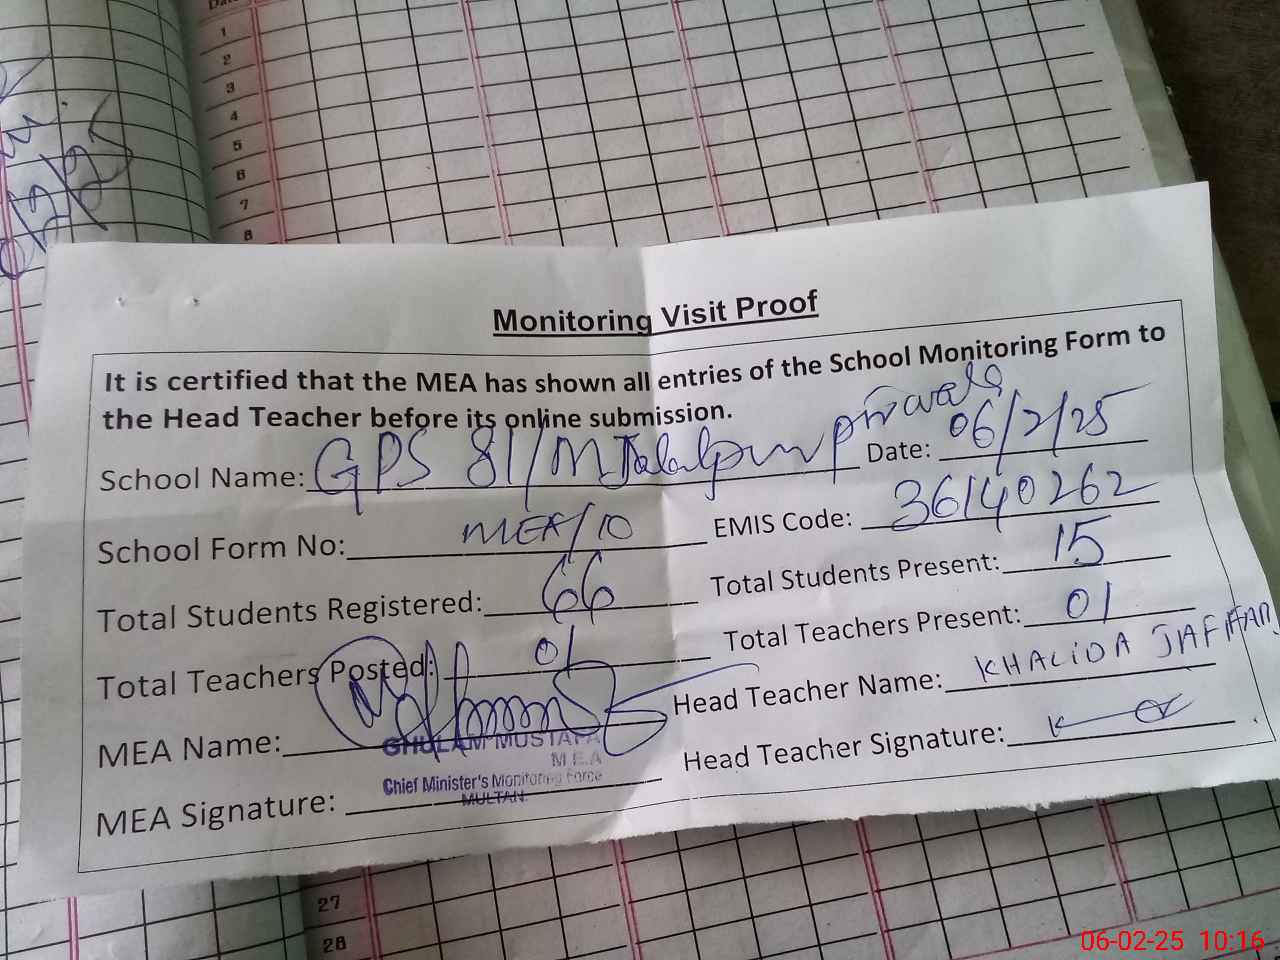 Dat
1
2
3
4
5
6
7
8
Monitoring Visit Proof
It is certified that the MEA has shown all entries of the School Monitoring Form to
the Head Teacher before its online submission.
School Name: GPS 81/M Jalalpur pirwala Date: 06/2/25
School Form No: MEA/10 EMIS Code: 36140262
Total Students Registered: 66 Total Students Present: 15
Total Teachers Posted: 01 Total Teachers Present: 01
MEA Name: Head Teacher Name: KHALIDA
GHULAM MUSTAFA
M.E.A
Chief Minister's Monitoring Force
MULTAN.
MEA Signature: Head Teacher Signature:
27
28
06-02-25 10:16